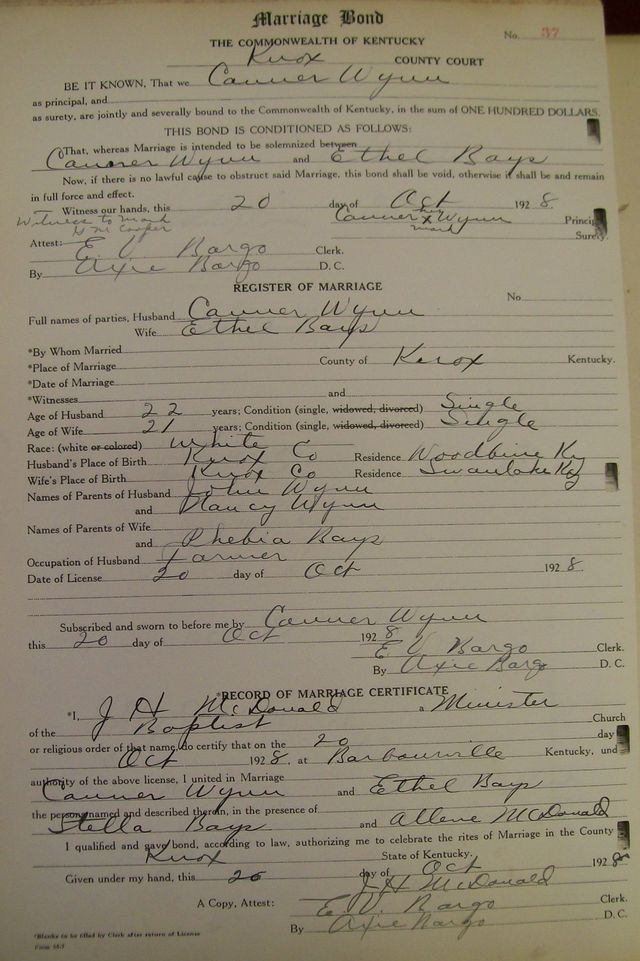 Marriage Bond
No. 37
THE COMMONWEALTH OF KENTUCKY
Knox COUNTY COURT
BE IT KNOWN, That we Canner Wynn
as principal, and
as surety, are jointly and severally bound to the Commonwealth of Kentucky, in the sum of ONE HUNDRED DOLLARS.
THIS BOND IS CONDITIONED AS FOLLOWS:
That, whereas Marriage is intended to be solemnized between
Canner Wynn and Ethel Bays
Now, if there is no lawful cause to obstruct said Marriage, this bond shall be void, otherwise it shall be and remain
in full force and effect.
Witness our hands, this 20 day of Oct 1928.
Witness to mark Canner his x mark Wynn Principal
H M Cooper Surety.
Attest: E. V. Bargo Clerk.
By Axie Bargo D. C.
REGISTER OF MARRIAGE
No
Full names of parties, Husband Canner Wynn
Wife Ethel Bays
*By Whom Married
*Place of Marriage County of Knox Kentucky.
*Date of Marriage
*Witnesses and
Age of Husband 22 years; Condition (single, widowed, divorced) Single
Age of Wife 21 years; Condition (single, widowed, divorced) Single
Race: (white or colored) White
Husband's Place of Birth Knox Co Residence Woodbine Ky
Wife's Place of Birth Knox Co Residence Swanlake Ky
Names of Parents of Husband John Wynn
and Nancy Wynn
Names of Parents of Wife
and Phebia Bays
Occupation of Husband Farmer
Date of License 20 day of Oct 1928.
Subscribed and sworn to before me by Canner Wynn
this 20 day of Oct 1928
E. V. Bargo Clerk.
By Axie Bargo D. C.
*RECORD OF MARRIAGE CERTIFICATE
*I, J H McDonald a Minister
of the Baptist Church
or religious order of that name, do certify that on the 20 day
Oct 1928, at Barbourville Kentucky, und
authority of the above license, I united in Marriage
Canner Wynn and Ethel Bays
the persons named and described therein, in the presence of
Stella Bays and Allene McDonald
I qualified and gave bond, according to law, authorizing me to celebrate the rites of Marriage in the County
Knox State of Kentucky.
Given under my hand, this 20 day of Oct 1928
J H McDonald
A Copy, Attest: E. V. Bargo Clerk.
By Axie Bargo D. C.
*Blanks to be filled by Clerk after return of License